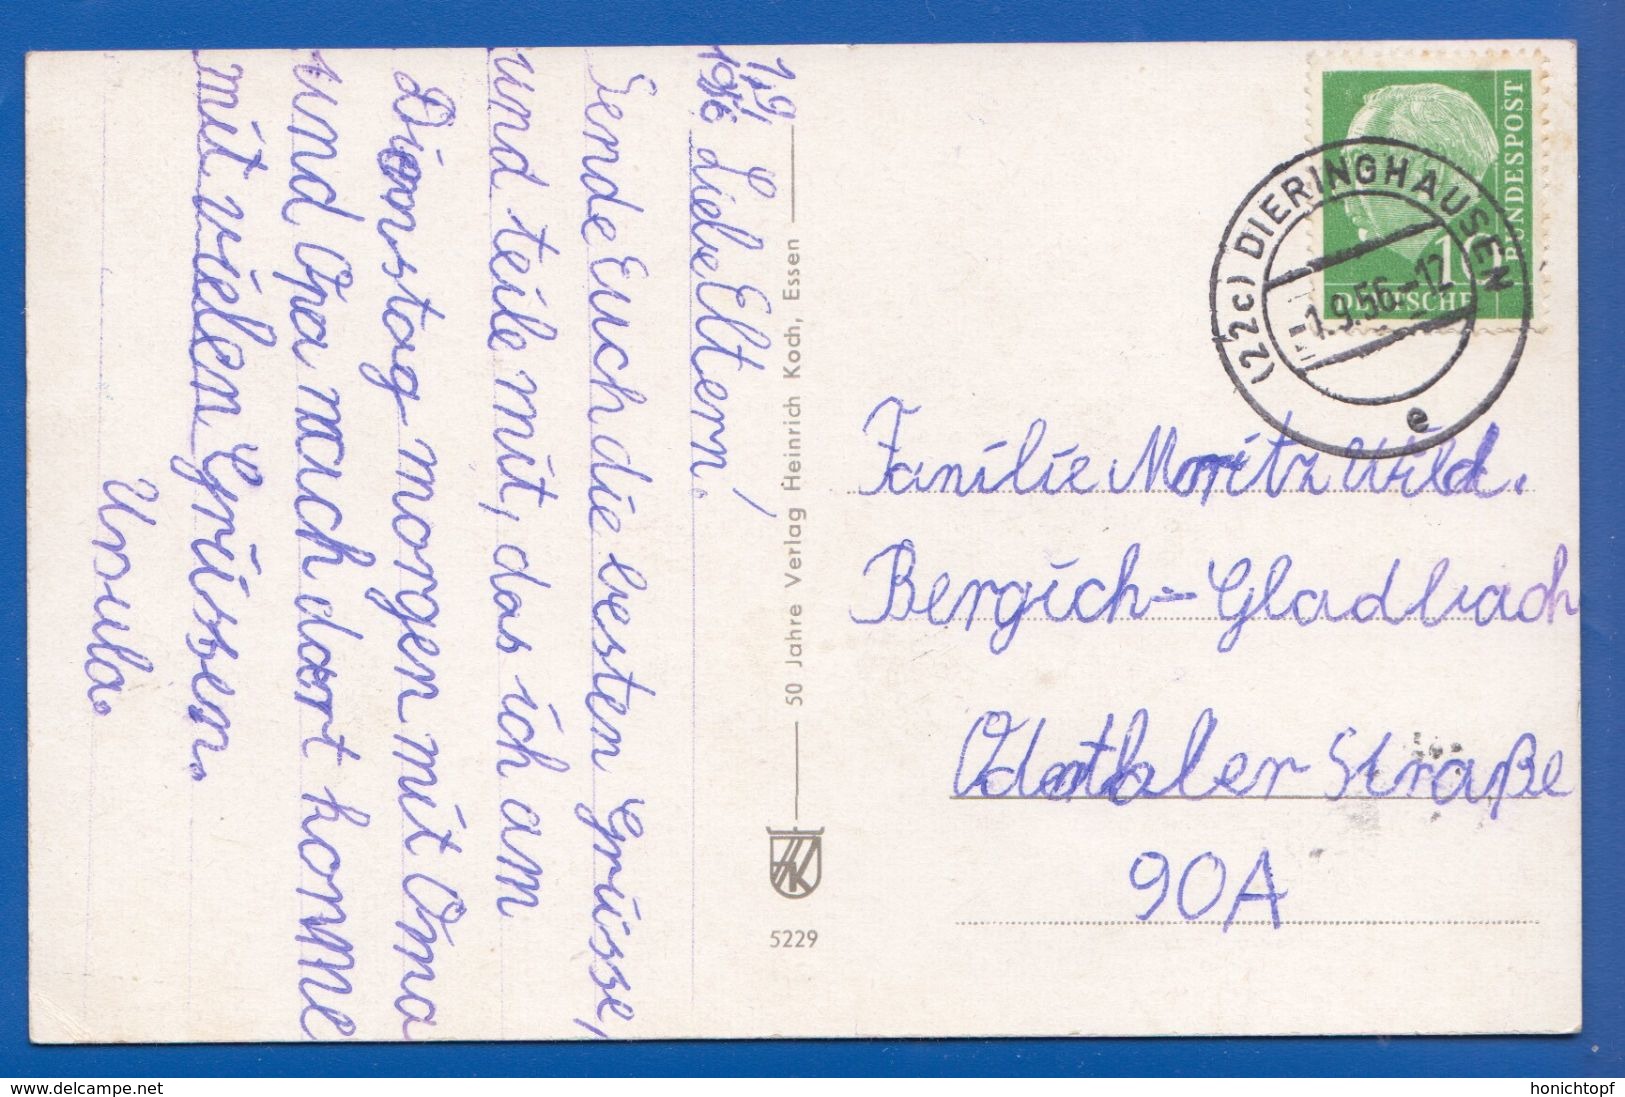 1.9.
1956. Liebe Eltern!
Sende Euch die besten Grüsse,
und teile mit, das ich am
Dienstag morgen mit Oma
und Opa nach dort komme
mit vielen Grüssen.
Ursula.
50 Jahre Verlag Heinrich Koch, Essen
HK
5229
DEUTSCHE BUNDESPOST
10
(22c) DIERINGHAUSEN
-1.9.56.-12
e
Familie Moritz Wild.
Bergich-Gladbach
Odenthaler Straße
90A
www.delcampe.net
honichtopf